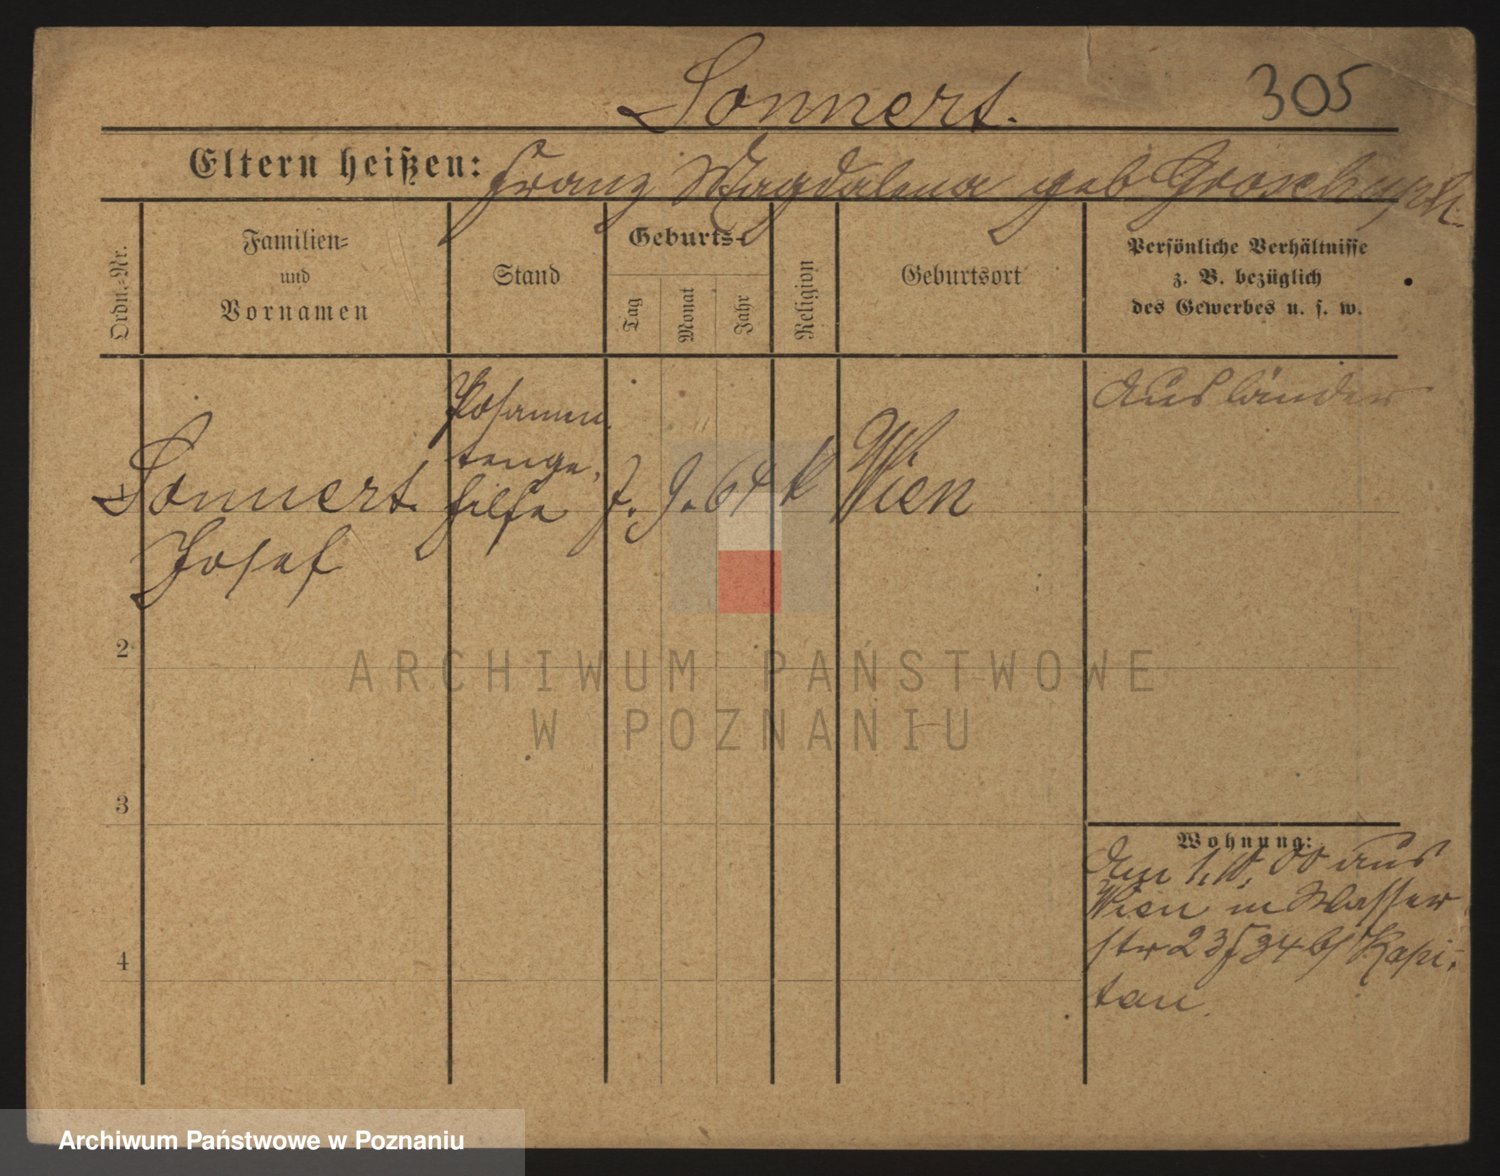 Sonnert.
305
Eltern heißen: Franz Magdalena geb
Ordn.-Nr.
Familien-
und
Vornamen
Stand
Geburts-
Tag
Monat
Jahr
Religion
Geburtsort
Persönliche Verhältnisse
z. B. bezüglich
des Gewerbes u. s. w.
1
Sonnert.
Josef
Posamen
tenge,
hilfe
7. 9. 64
k
Wien
Ausländer
2
3
4
Wohnung:
Am 1. 10. 00 aus
Wien in Wasser
str 23/ 34 b/ Kapi-
tan.
ARCHIWUM PAŃSTWOWE
W POZNANIU
Archiwum Państwowe w Poznaniu